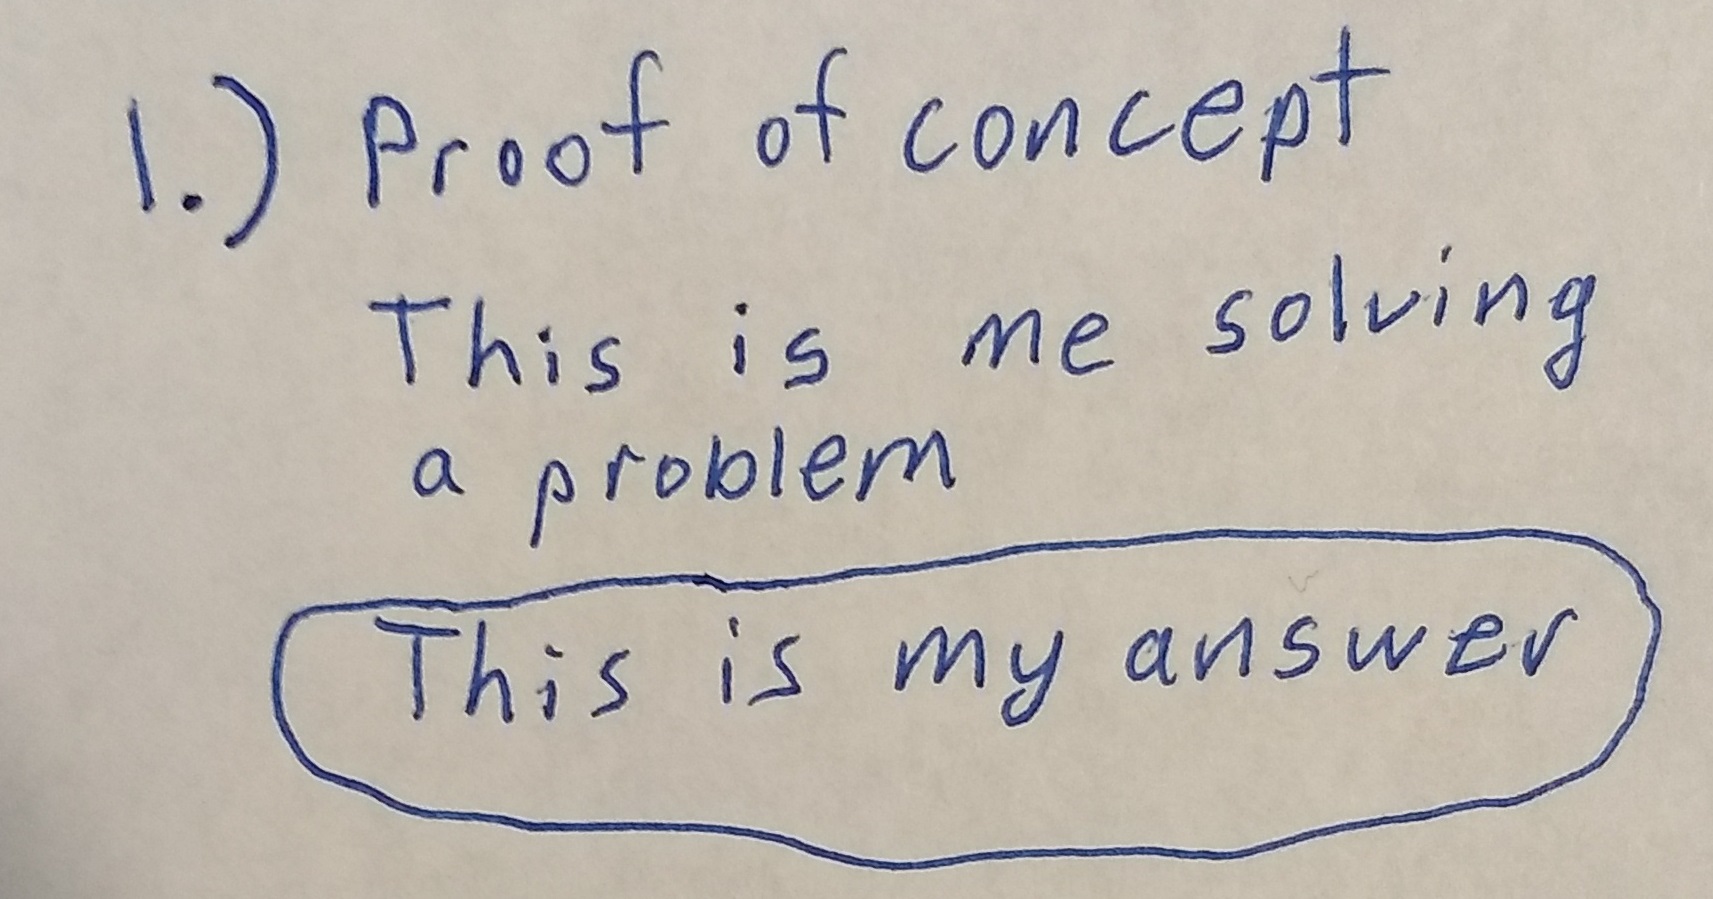 1.) Proof of concept
This is me solving
a problem
This is my answer